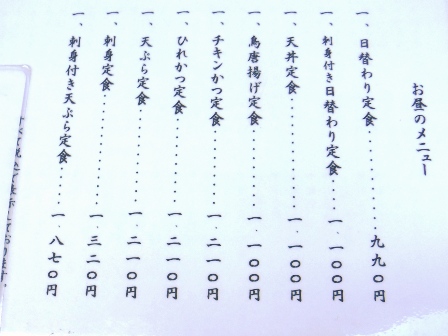 お昼のメニュー
一、日替わり定食・・・・・・・・・・九九〇円
一、刺身付き日替わり定食・・・・一.一〇〇円
一、天丼定食・・・・・・・・・・・一.一〇〇円
一、鳥唐揚げ定食・・・・・・・・一.一〇〇円
一、チキンかつ定食・・・・・・・一.二一〇円
一、ひれかつ定食・・・・・・・・一.二一〇円
一、天ぷら定食・・・・・・・・・一.二一〇円
一、刺身定食・・・・・・・・・・一.三二〇円
一、刺身付き天ぷら定食・・・・・一.八七〇円
すべて税込で表示しております。